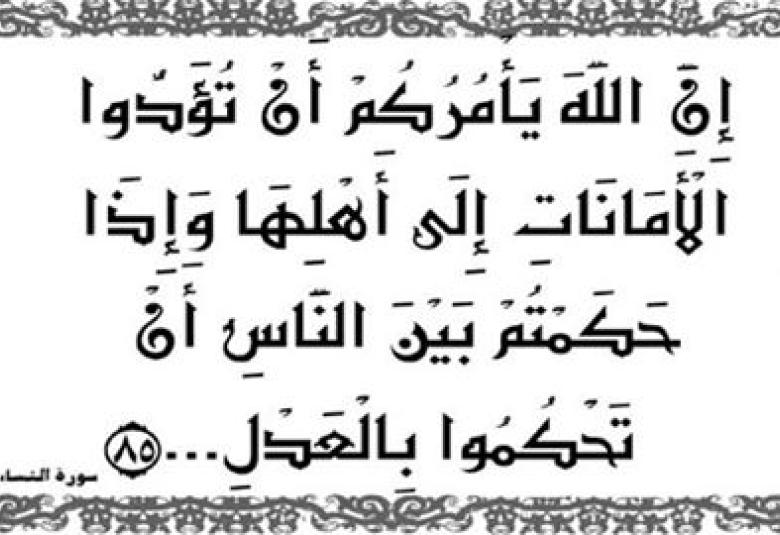 إِنَّ اللَّهَ يَأْمُرُكُمْ أَنْ تُؤَدُّوا
الْأَمَانَاتِ إِلَى أَهْلِهَا وَإِذَا
حَكَمْتُمْ بَيْنَ النَّاسِ أَنْ
تَحْكُمُوا بِالْعَدْلِ...٨٥
سورة النساء